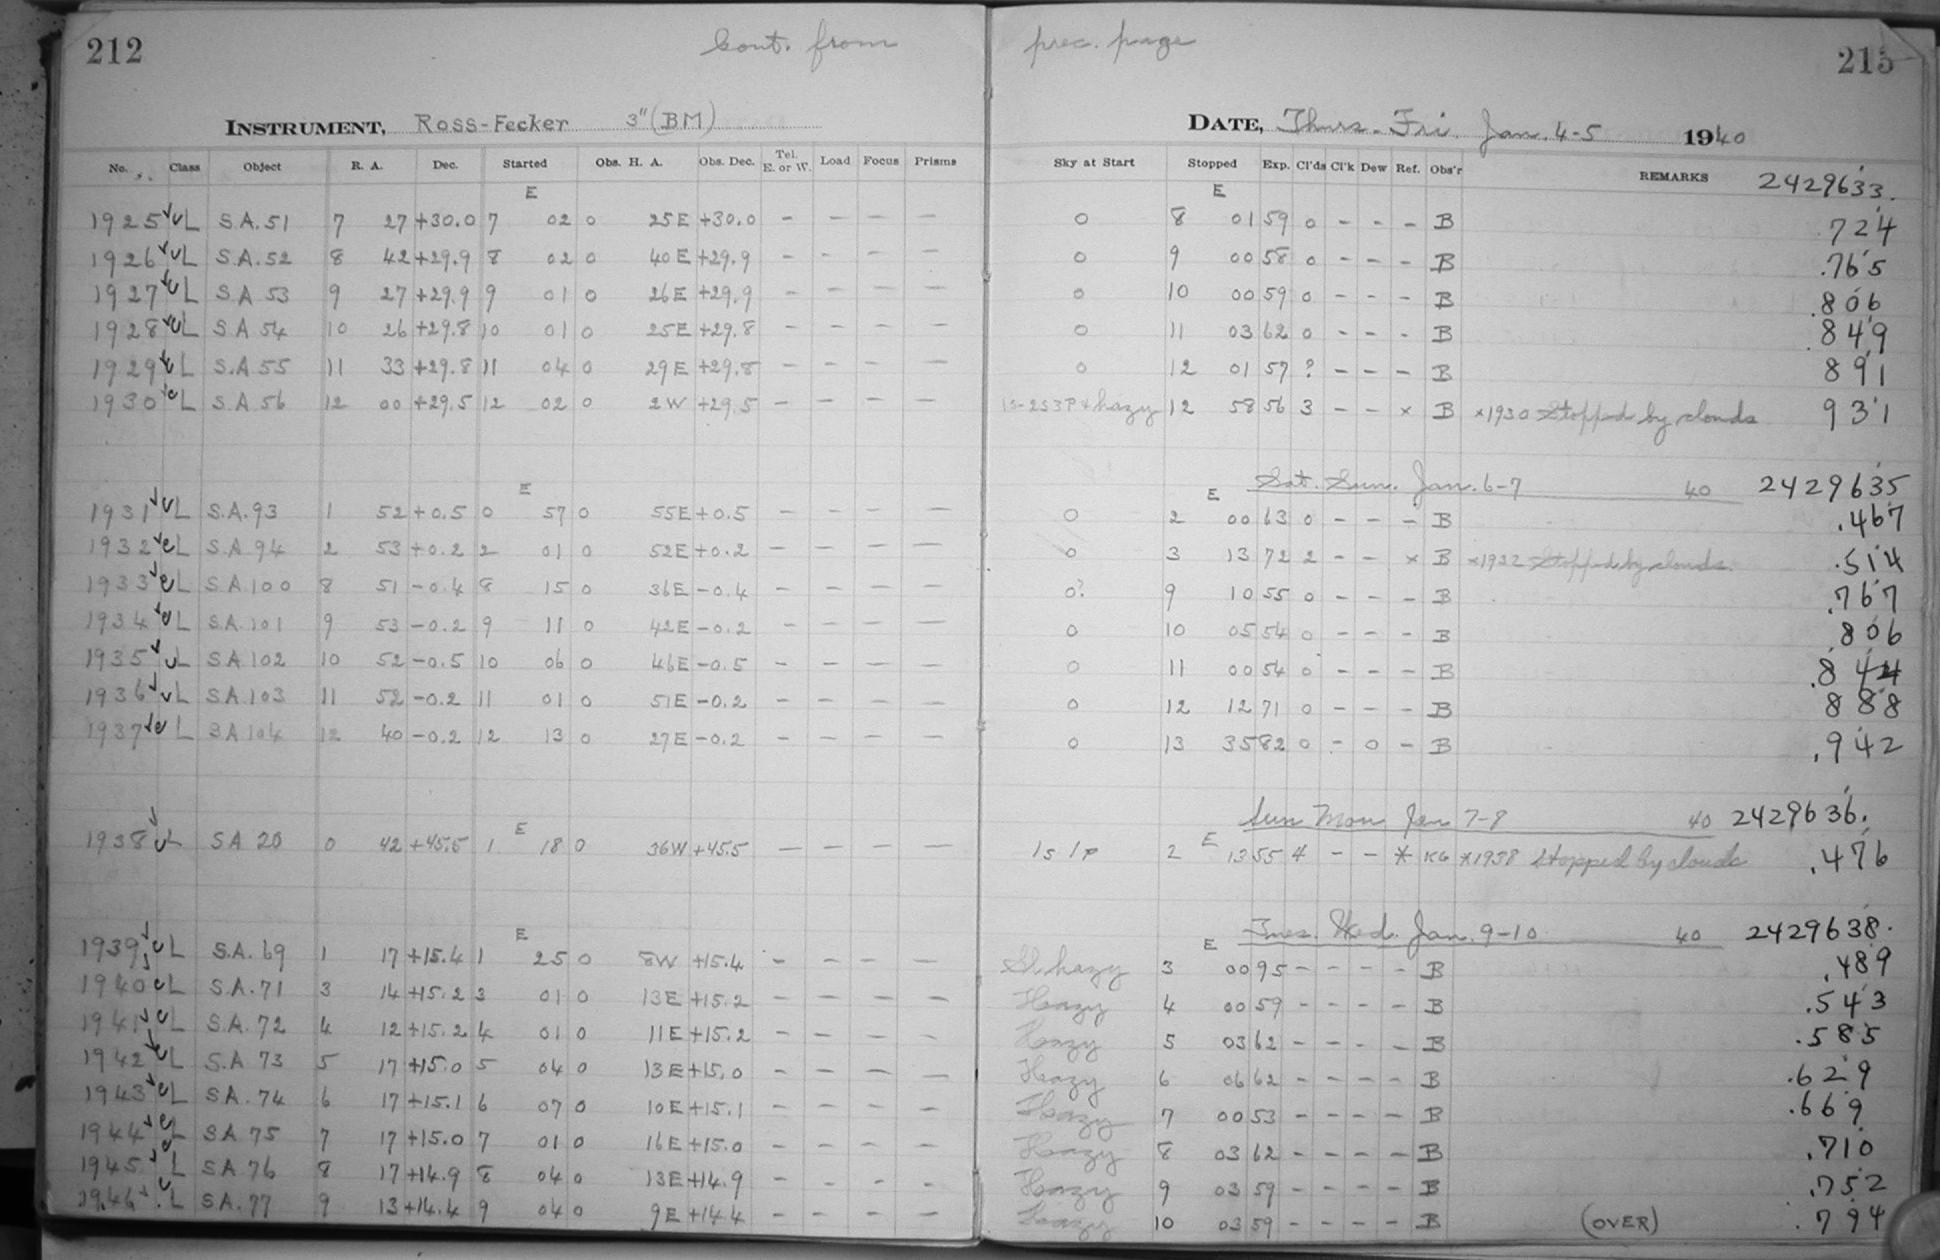 212 Cont. from prec. page 213
INSTRUMENT, Ross-Fecker 3" (BM) DATE, Thurs. Fri. Jan. 4-5 1940
No. Class Object R. A. Dec. Started Obs. H. A. Obs. Dec. Tel. E. or W. Load Focus Prisms Sky at Start Stopped Exp. Cl'ds Cl'k Dew Ref. Obs'r REMARKS 2429633.
E E
1925 L S.A. 51 7 27 +30.0 7 02 0 25E +30.0 - - - - 0 8 01 59 0 - - - B .724
1926 L S.A. 52 8 42 +29.9 8 02 0 40E +29.9 - - - - 0 9 00 58 0 - - - B .765
1927 L S.A 53 9 27 +29.9 9 01 0 26E +29.9 - - - - 0 10 00 59 0 - - - B .806
1928 L S A 54 10 26 +29.8 10 01 0 25E +29.8 - - - - 0 11 03 62 0 - - - B .849
1929 L S.A 55 11 33 +29.8 11 04 0 29E +29.8 - - - - 0 12 01 57 ? - - - B 891
1930 L S.A 56 12 00 +29.5 12 02 0 2W +29.5 - - - - hazy 12 58 56 3 - - x B x1930 Stopped by clouds 931
E E Sat. Sun. Jan. 6-7 40 2429635
1931 L S.A. 93 1 52 +0.5 0 57 0 55E +0.5 - - - - 0 2 00 63 0 - - - B .467
1932 L S.A 94 2 53 +0.2 2 01 0 52E +0.2 - - - - 0 3 13 72 2 - - x B x1932 Stopped by clouds. .514
1933 L S.A 100 8 51 -0.4 8 15 0 36E -0.4 - - - - 0? 9 10 55 0 - - - B .767
1934 L S.A. 101 9 53 -0.2 9 11 0 42E -0.2 - - - - 0 10 05 54 0 - - - B .806
1935 L SA 102 10 52 -0.5 10 06 0 46E -0.5 - - - - 0 11 00 54 0 - - - B .844
1936 L S.A. 103 11 52 -0.2 11 01 0 51E -0.2 - - - - 0 12 12 71 0 - - - B 888
1937 L SA 104 12 40 -0.2 12 13 0 27E -0.2 - - - - 0 13 35 82 0 - 0 - B .942
E E Sun Mon Jan 7-8 40 2429636.
1938 SA 20 0 42 +45.5 1 18 0 36W +45.5 - - - - 1s 1p 2 13 55 4 - - * KG *1938 Stopped by clouds .476
E E Tues. Wed. Jan. 9-10 40 2429638.
1939 L S.A. 69 1 17 +15.4 1 25 0 8W +15.4 - - - - Sl. hazy 3 00 95 - - - - B .489
1940 L S.A. 71 3 14 +15.2 3 01 0 13E +15.2 - - - - Hazy 4 00 59 - - - - B .543
1941 L S.A. 72 4 12 +15.2 4 01 0 11E +15.2 - - - - Hazy 5 03 62 - - - - B .585
1942 L S.A 73 5 17 +15.0 5 04 0 13E +15.0 - - - - Hazy 6 06 62 - - - - B .629
1943 L SA. 74 6 17 +15.1 6 07 0 10E +15.1 - - - - Hazy 7 00 53 - - - - B .669
1944 L SA 75 7 17 +15.0 7 01 0 16E +15.0 - - - - Hazy 8 03 62 - - - - B .710
1945 L SA 76 8 17 +14.9 8 04 0 13E +14.9 - - - - Hazy 9 03 59 - - - - B .752
1946 L S.A. 77 9 13 +14.4 9 04 0 9E +14.4 - - - - Hazy 10 03 59 - - - - B (OVER) .794